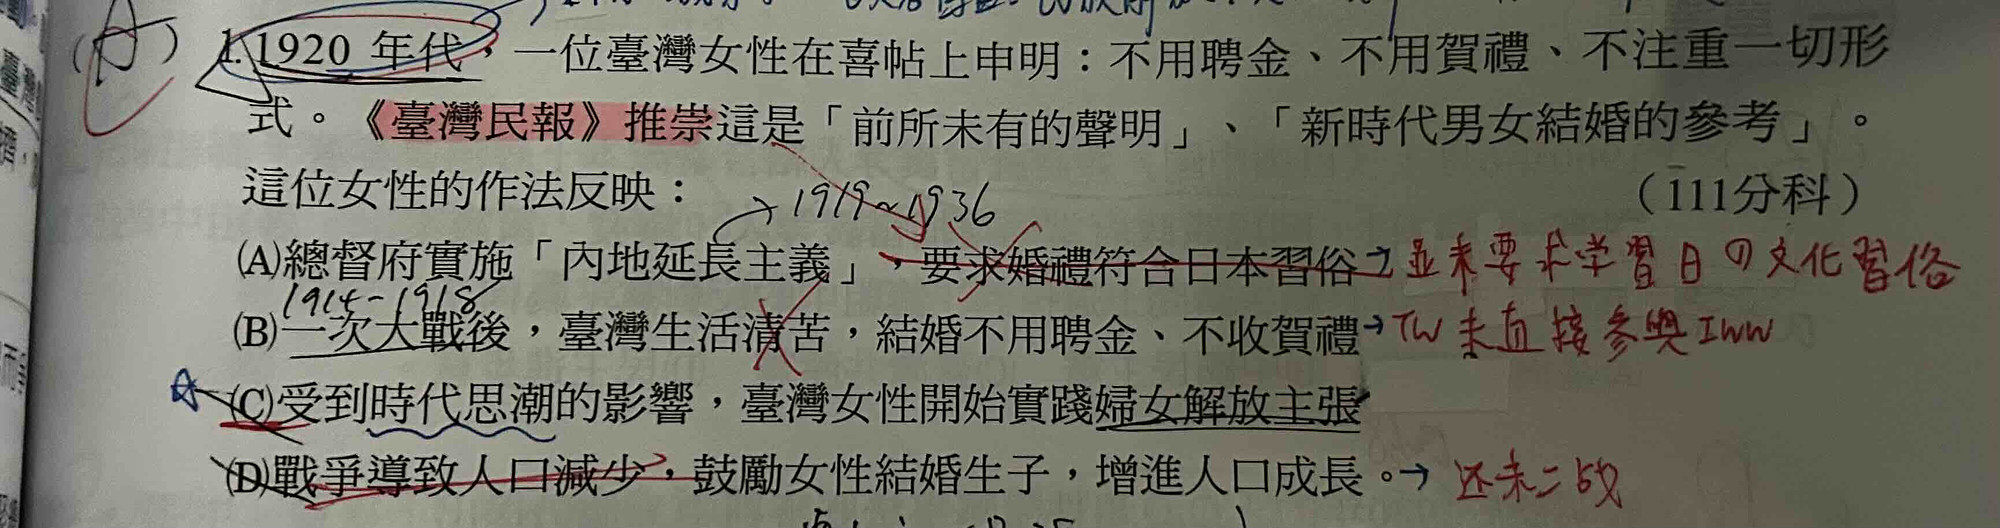 (A) 1. 1920 年代，一位臺灣女性在喜帖上申明：不用聘金、不用賀禮、不注重一切形
式。《臺灣民報》推崇這是「前所未有的聲明」、「新時代男女結婚的參考」。
這位女性的作法反映： （111分科）
→1919~1936
(A)總督府實施「內地延長主義」，要求婚禮符合日本習俗→並未要求学習日の文化習俗
1914-1918
(B)一次大戰後，臺灣生活清苦，結婚不用聘金、不收賀禮→TW未直接參與Iww
(C)受到時代思潮的影響，臺灣女性開始實踐婦女解放主張
(D)戰爭導致人口減少，鼓勵女性結婚生子，增進人口成長。→还未二战